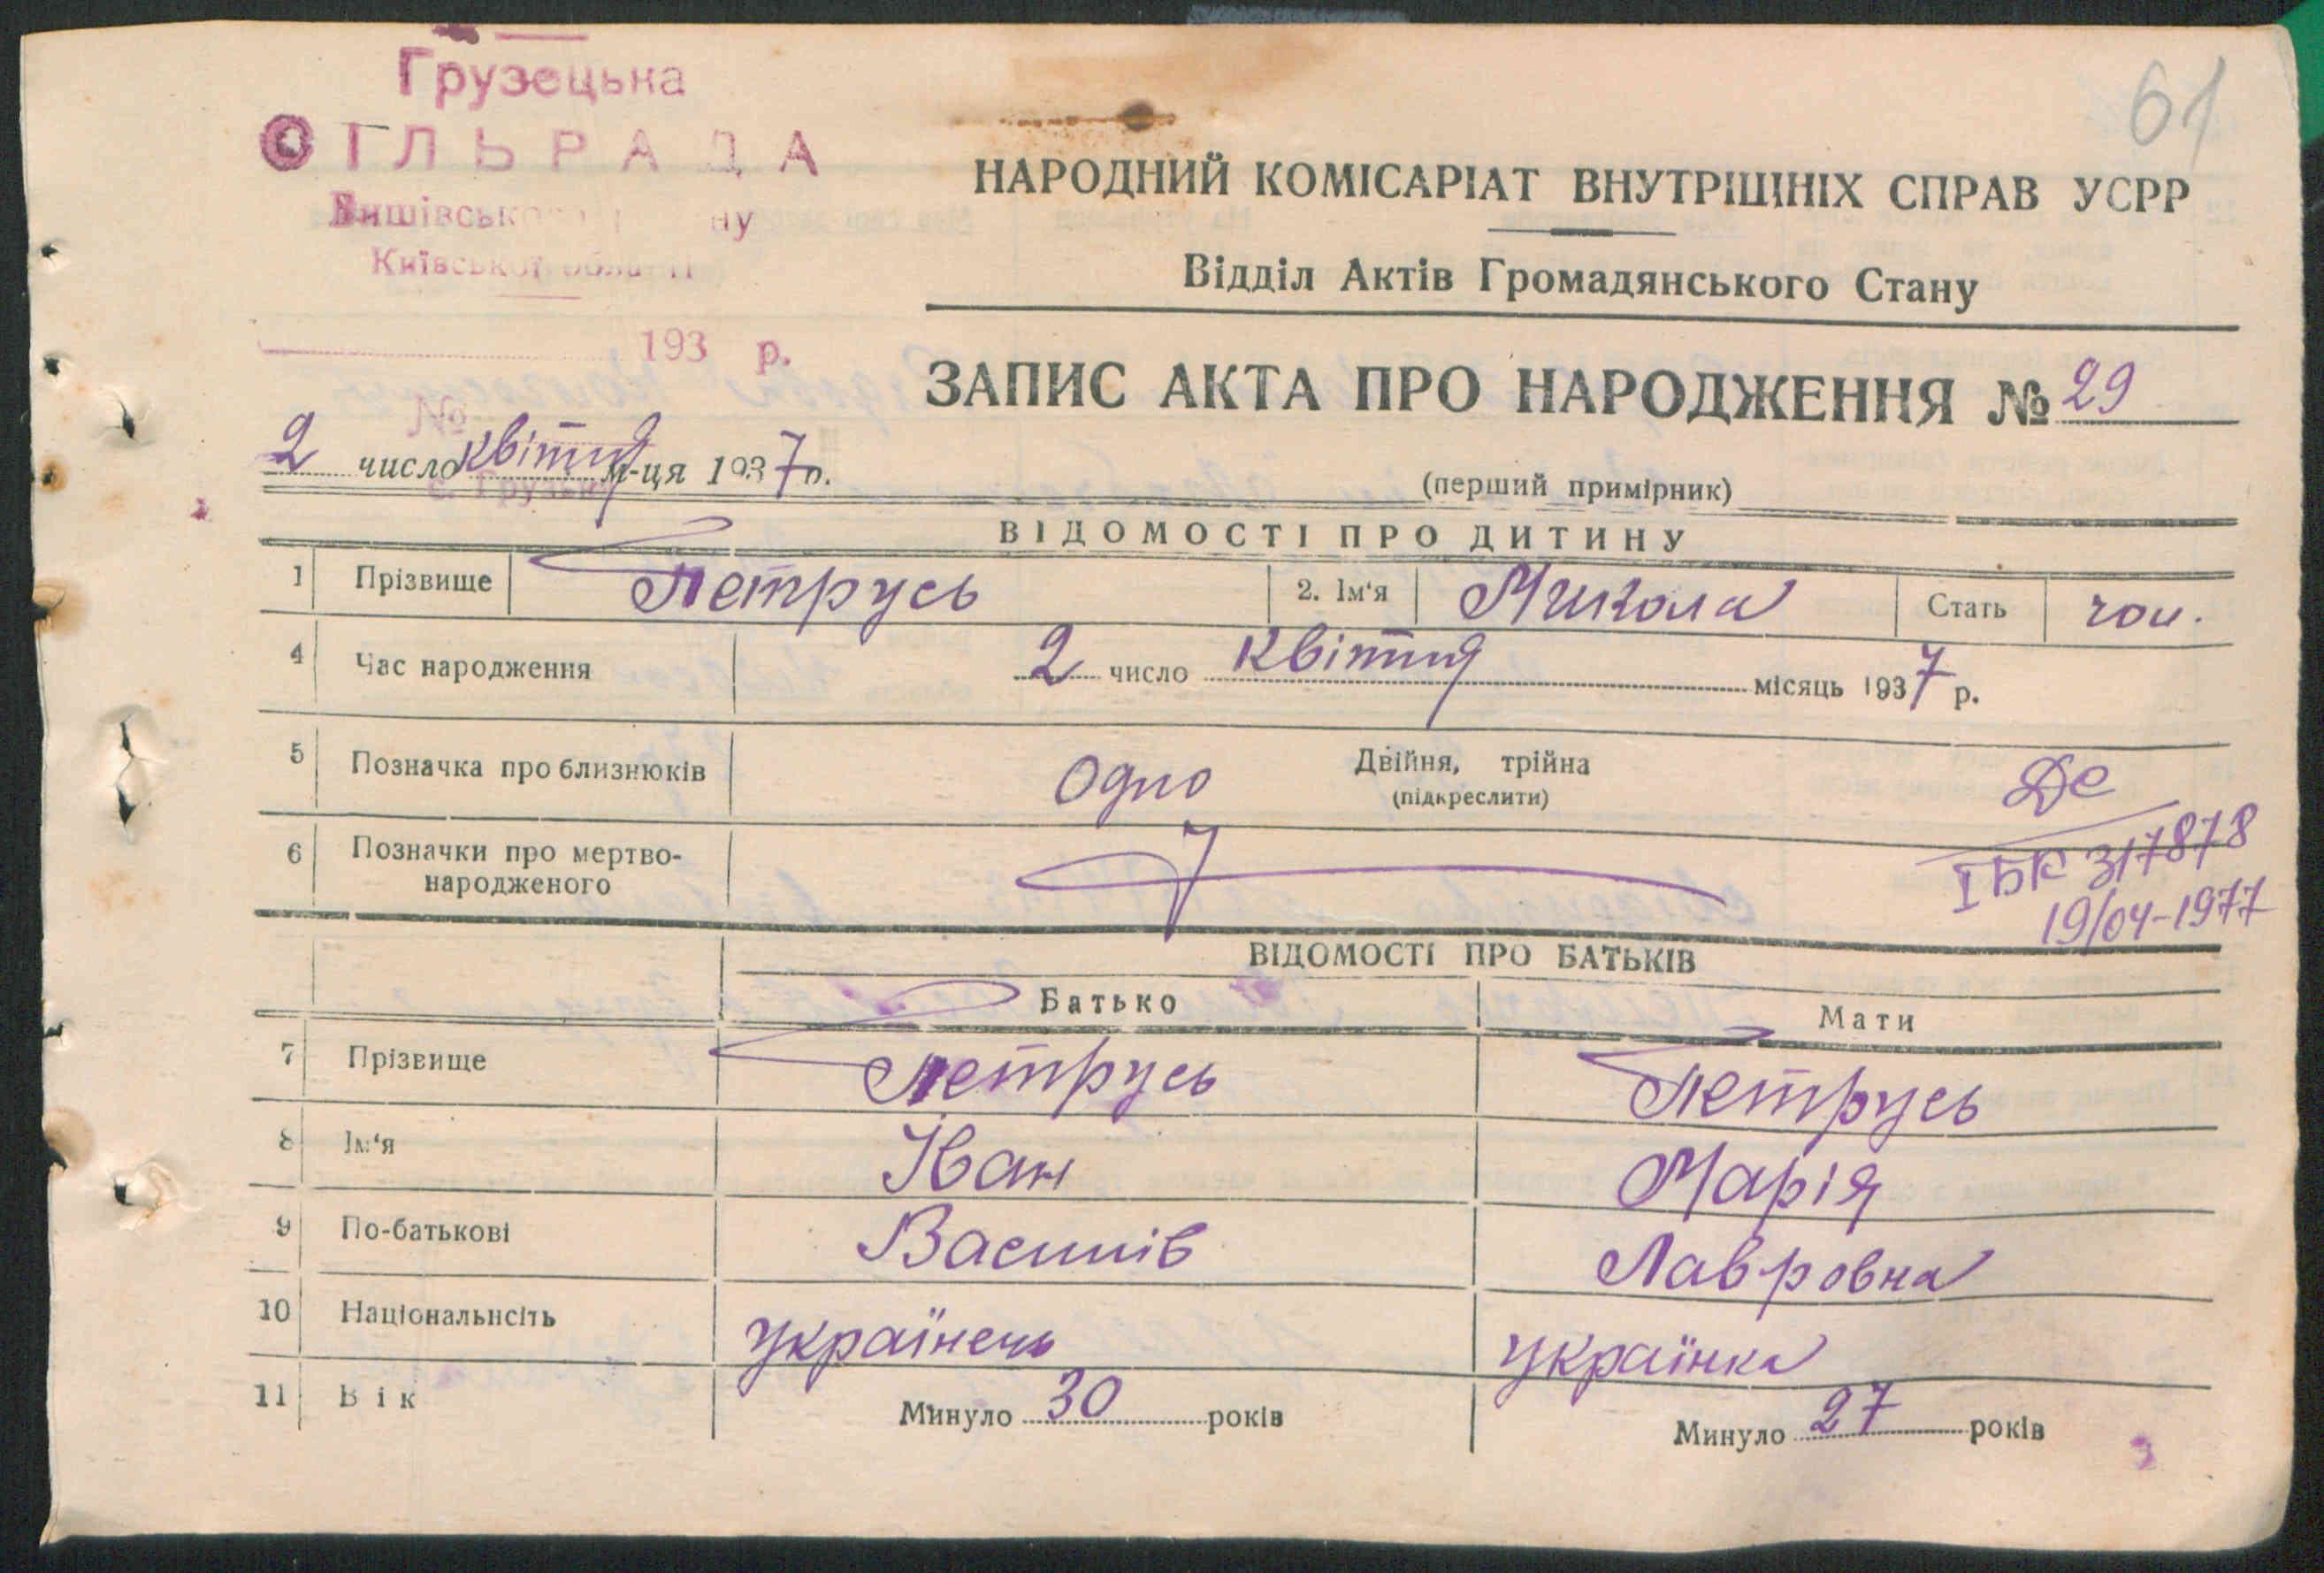 Грузецька
СІЛЬРАДА
Київської
193 р.
№
с. Грузьке
61
НАРОДНИЙ КОМІСАРІАТ ВНУТРІШНІХ СПРАВ УСРР
Відділ Актів Громадянського Стану
ЗАПИС АКТА ПРО НАРОДЖЕННЯ № 29
2 число квітня м-ця 1937 р.
(перший примірник)
ВІДОМОСТІ ПРО ДИТИНУ
1 Прізвище Петрусь 2. Ім'я Микола Стать чол.
4 Час народження 2 число квітня місяць 1937 р.
5 Позначка про близнюків Одно Двійня, трійна
(підкреслити)
6 Позначки про мертво-
народженого
І БК 317878
19/04-1977
ВІДОМОСТІ ПРО БАТЬКІВ
Батько Мати
7 Прізвище Петрусь Петрусь
8 Ім'я Іван Марія
9 По-батькові Василів Лавровна
10 Національнсіть українець українка
11 Вік Минуло 30 років Минуло 27 років